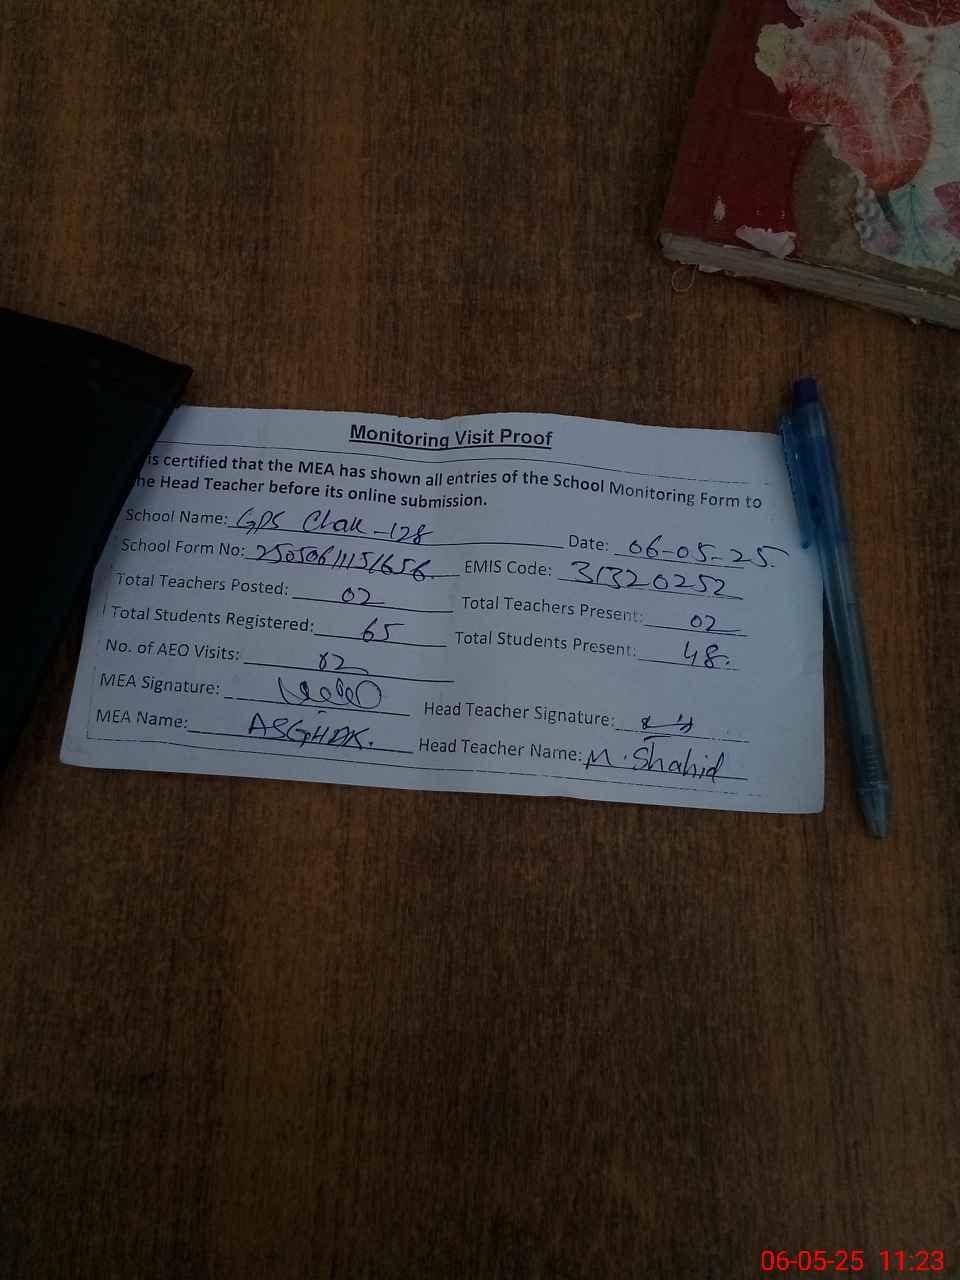 Monitoring Visit Proof
is certified that the MEA has shown all entries of the School Monitoring Form to
he Head Teacher before its online submission.
School Name: GPS Chak-128 Date: 06-05-25.
School Form No: 25050611151656 EMIS Code: 31320252
Total Teachers Posted: 02 Total Teachers Present: 02
Total Students Registered: 65 Total Students Present: 48.
No. of AEO Visits: 02
MEA Signature: Head Teacher Signature:
MEA Name: ASGHAR. Head Teacher Name: M. Shahid
06-05-25 11:23